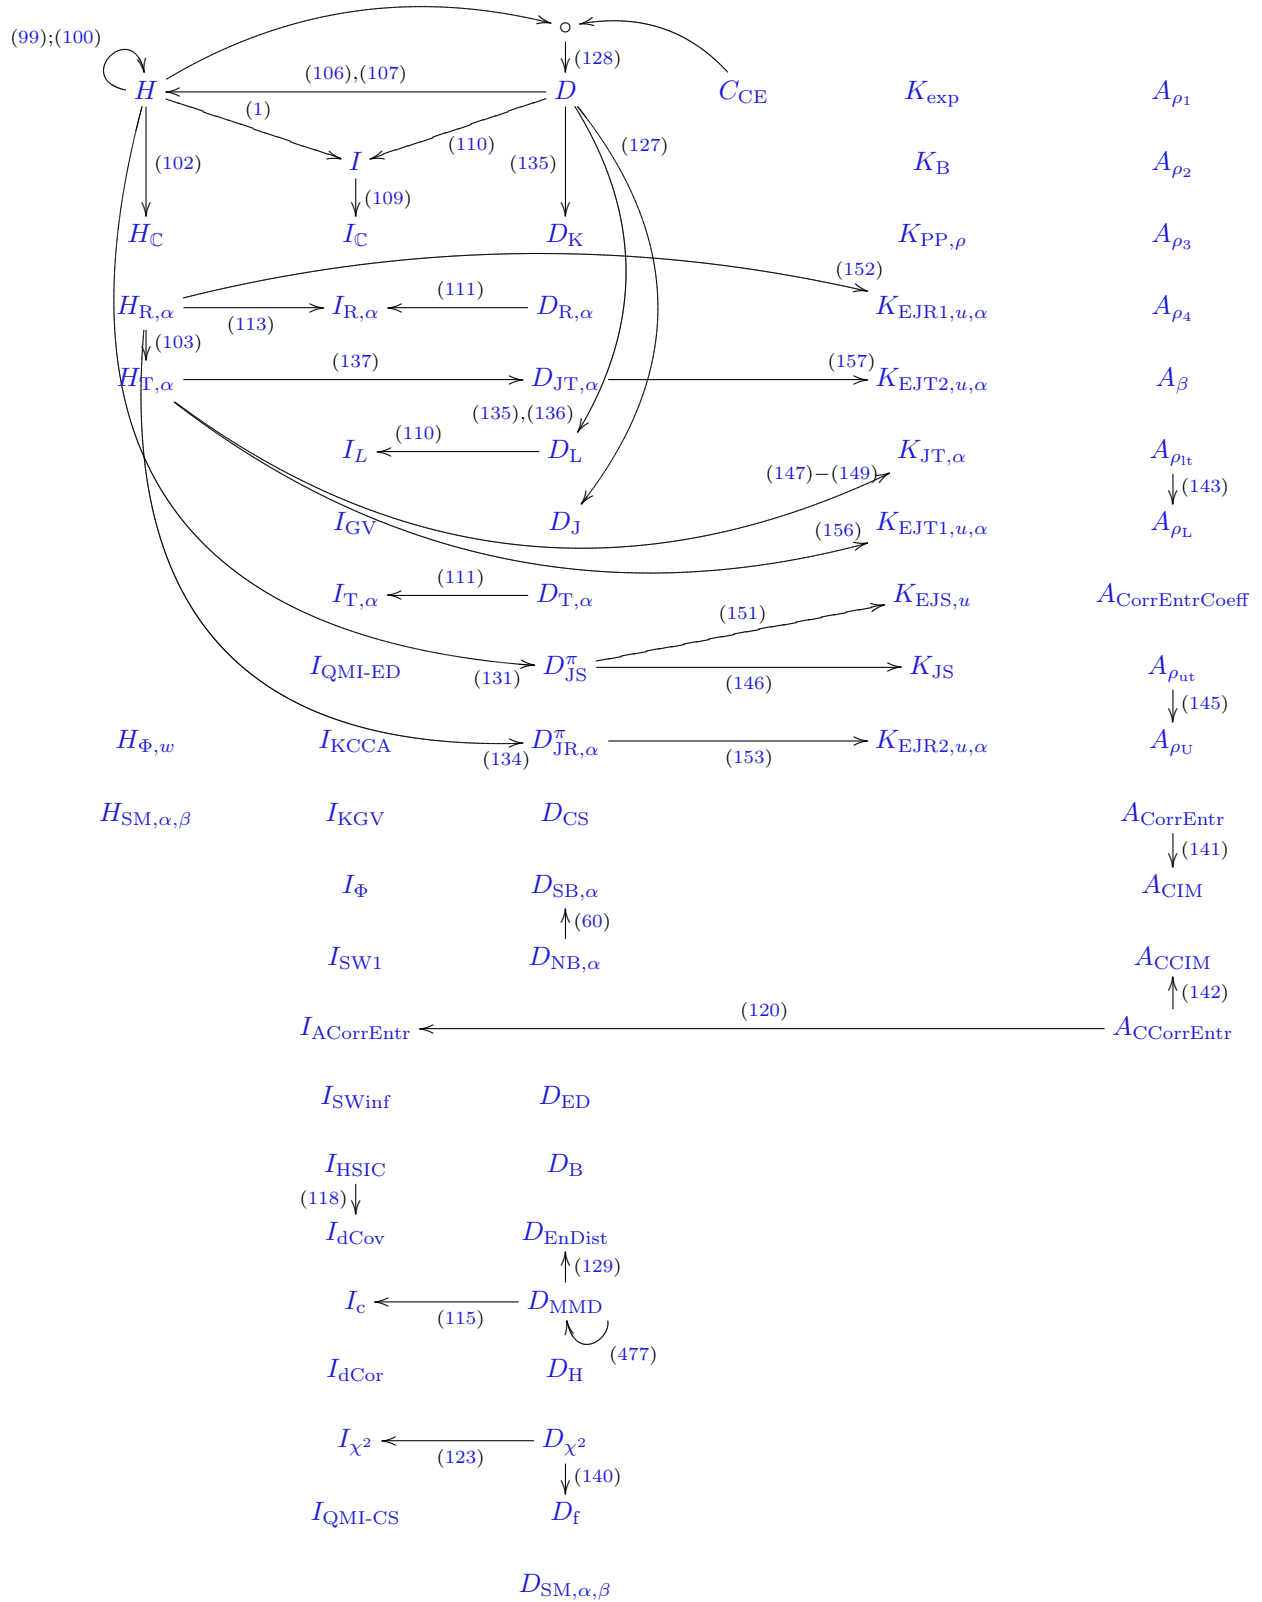 (99);(100)
(128)
(106),(107)
H D C_CE K_exp A_ρ₁
(1)
(110) (127)
(102) (135)
I K_B A_ρ₂
(109)
H_ℂ I_ℂ D_K K_PP,ρ A_ρ₃
(152)
(111)
H_R,α I_R,α D_R,α K_EJR1,u,α A_ρ₄
(113)
(103)
(137) (157)
H_T,α D_JT,α K_EJT2,u,α A_β
(135),(136)
(110)
I_L D_L K_JT,α A_ρ_lt
(147)−(149) (143)
I_GV D_J K_EJT1,u,α A_ρ_L
(156)
(111)
I_T,α D_T,α K_EJS,u A_CorrEntrCoeff
(151)
I_QMI-ED D_JS^π K_JS A_ρ_ut
(131) (146)
(145)
H_Φ,w I_KCCA D_JR,α^π K_EJR2,u,α A_ρ_U
(134) (153)
H_SM,α,β I_KGV D_CS A_CorrEntr
(141)
I_Φ D_SB,α A_CIM
(60)
I_SW1 D_NB,α A_CCIM
(142)
(120)
I_ACorrEntr A_CCorrEntr
I_SWinf D_ED
I_HSIC D_B
(118)
I_dCov D_EnDist
(129)
I_c D_MMD
(115)
(477)
I_dCor D_H
I_χ² D_χ²
(123)
(140)
I_QMI-CS D_f
D_SM,α,β